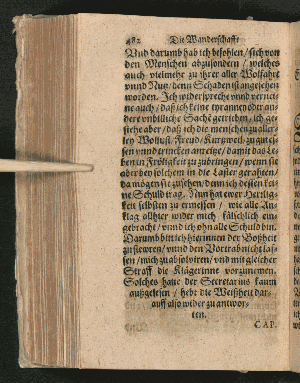 482 Die Wanderschafft
Und darumb hab ich befohlen / sich von
den Menschen abzusondern / welches
auch vielmehr zu ihrer aller Wolfahrt
vnnd Nutz / denn Schaden ist angesehen
worden. Ich widerspreche vnnd vernei-
ne auch / daß ich keine tyrannen oder an-
dere vnbilliche Sache getrieben / ich ge-
stehe aber / daß ich die menschen zu aller-
ley Wollust / Freud / Kurtzweil / zu gut es-
sen vnnd trincken anreitze / damit das Le-
ben in Frölichkeit zuzubringen / wenn sie
aber bey solchem in die Laster gerahten /
da mögen sie zusehen / denn ich dessen kei-
ne Schuld trag. Nun hat ewer Herrlig-
keit selbsten zu ermessen / wie alle An-
klag allhier wider mich fälschlich ein-
gebracht / vnnd ich ohn alle Schuld bin.
Darumb bitt ich hierinnen der Boßheit
zu steweren / vnnd den Vortrab nicht las-
sen / mich zu absolviren / vnd mit gleicher
Straff die Klägerinne vorzunemen.
Solches hatte der Secretarius kaum
außgelesen / hebt die Weißheit dar-
auff also wider zu antwor-
ten.
CAP.